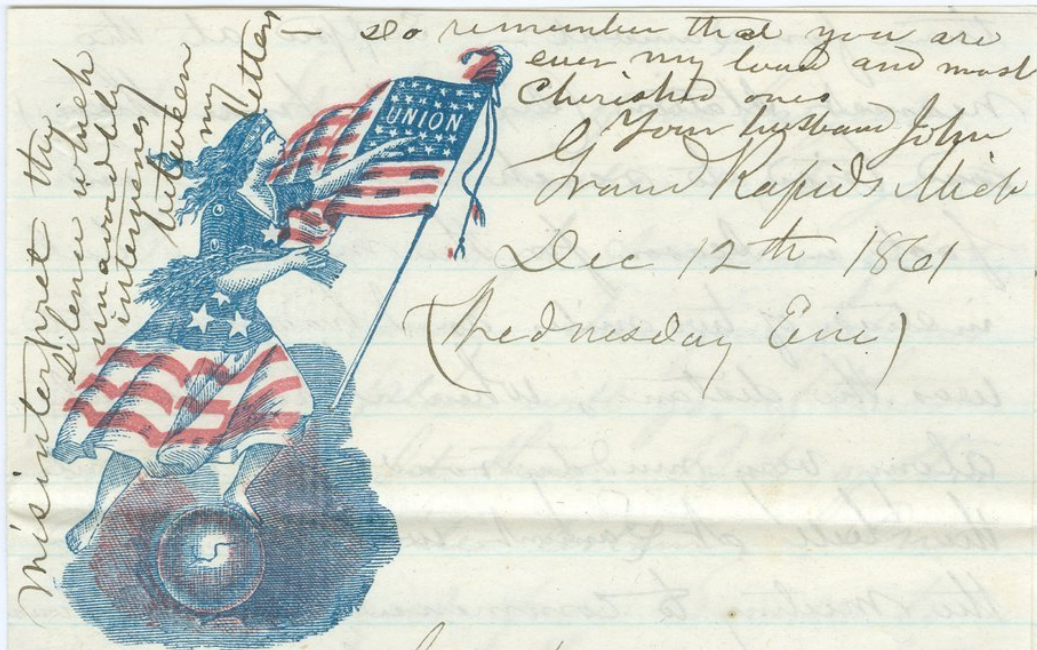 misinterpret the
silence which
unavoidly
intervenes
between
my
letters
— so remember that you are
ever my loved and most
Cherished ones
Your husband John
Grand Rapids Mich
Dec 12th 1861
(Wednesday Eve)
UNION